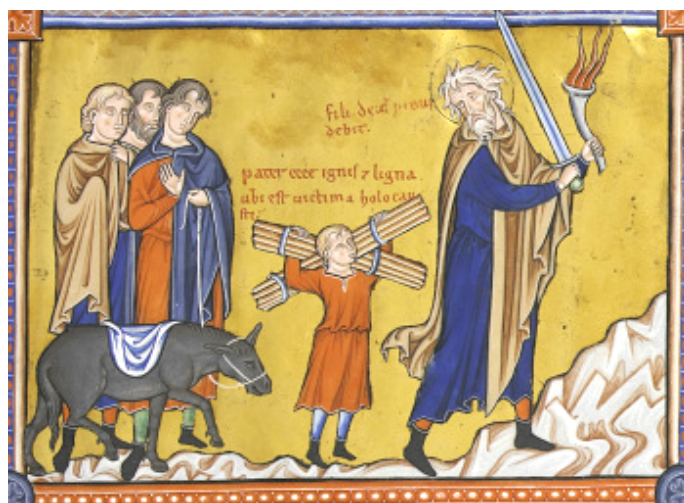 fili deus proui
debit.
pater ecce ignis ⁊ ligna
ubi est uictima holocau
sti.